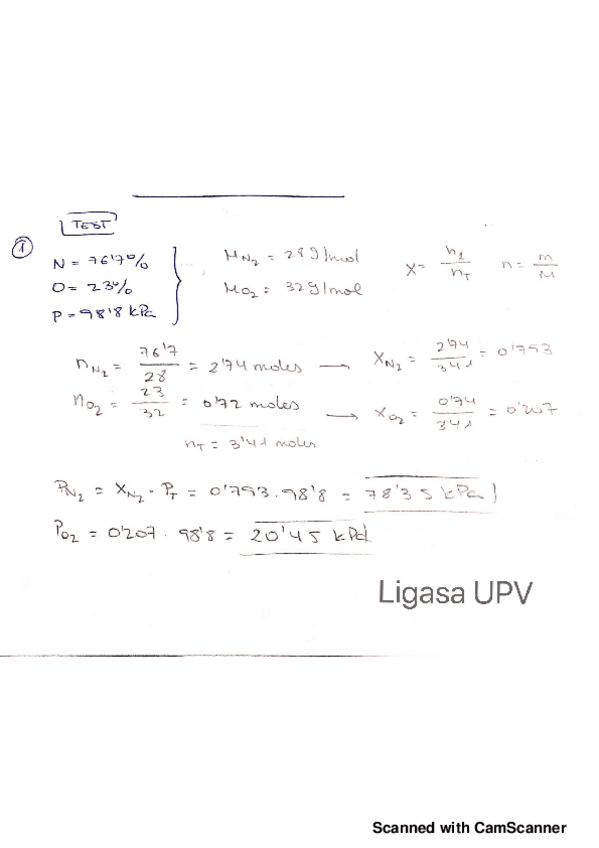 TEST
① N = 76'7% M_N2 = 28 g/mol X = n1/nT n = m/M
O = 23% M_O2 = 32 g/mol
P = 98'8 kPa
n_N2 = 76'7/28 = 2'74 moles → X_N2 = 2'74/3'41 = 0'793
n_O2 = 23/32 = 0'72 moles → X_O2 = 0'74/3'41 = 0'207
n_T = 3'41 moles
P_N2 = X_N2 · P_T = 0'793 · 98'8 = 78'35 kPa
P_O2 = 0'207 · 98'8 = 20'45 kPa
Ligasa UPV
Scanned with CamScanner